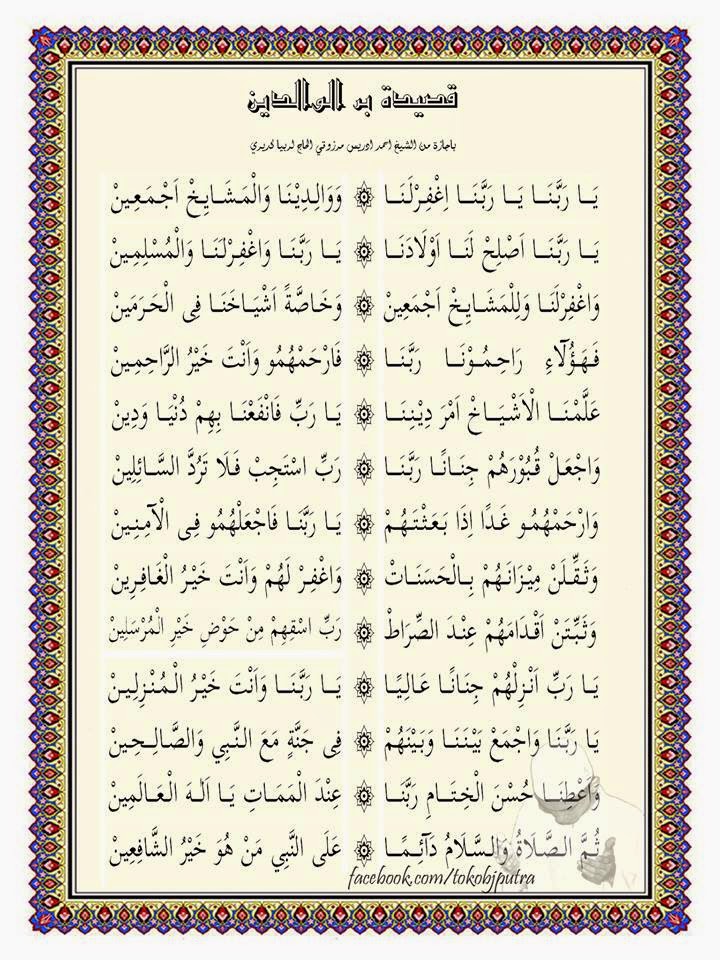 قصيدة بر الوالدين
باجازة من الشيخ احمد ادريس مرزوقي الحاج لربيا كديري
يَا رَبَّنَا يَا رَبَّنَا اِغْفِرْلَنَا ۞ وَوَالِدِيْنَا وَالْمَشَايِخْ اَجْمَعِيْنْ
يَا رَبَّنَا اَصْلِحْ لَنَا اَوْلَادَنَا ۞ يَا رَبَّنَا وَاغْفِرْلَنَا وَالْمُسْلِمِيْنْ
وَاغْفِرْلَنَا وَلِلْمَشَايِخْ اَجْمَعِيْنْ ۞ وَخَاصَّةً اَشْيَاخَنَا فِى الْحَرَمَيْنْ
فَهَؤُلَآءِ رَاحِمُوْنَا رَبَّنَا ۞ فَارْحَمْهُمُو وَاَنْتَ خَيْرُ الرَّاحِمِيْنْ
عَلَّمْنَا الْاَشْيَاخْ اَمْرَ دِيْنِنَا ۞ يَا رَبِّ فَانْفَعْنَا بِهِمْ دُنْيَا وَدِيْنْ
وَاجْعَلْ قُبُوْرَهُمْ جِنَانًا رَبَّنَا ۞ رَبِّ اسْتَجِبْ فَلَا تَرُدَّ السَّائِلِيْنْ
وَارْحَمْهُمُو غَدًا اِذَا بَعَثْتَهُمْ ۞ يَا رَبَّنَا فَاجْعَلْهُمُو فِى الْاٰمِنِيْنْ
وَثَقِّلَنْ مِيْزَانَهُمْ بِالْحَسَنَاتْ ۞ وَاغْفِرْ لَهُمْ وَاَنْتَ خَيْرُ الْغَافِرِيْنْ
وَثَبِّتَنْ اَقْدَامَهُمْ عِنْدَ الصِّرَاطْ ۞ رَبِّ اسْقِهِمْ مِنْ حَوْضِ خَيْرِ الْمُرْسَلِيْنْ
يَا رَبِّ اَنْزِلْهُمْ جِنَانًا عَالِيًا ۞ يَا رَبَّنَا وَاَنْتَ خَيْرُ الْمُنْزِلِيْنْ
يَا رَبَّنَا وَاجْمَعْ بَيْنَنَا وَبَيْنَهُمْ ۞ فِى جَنَّةٍ مَعَ النَّبِي وَالصَّالِحِيْنْ
وَاَعْطِنَا حُسْنَ الْخِتَامِ رَبَّنَا ۞ عِنْدَ الْمَمَاتِ يَا اَلٰهَ الْعَالَمِيْنْ
ثُمَّ الصَّلَاةُ وَالسَّلَامُ دَآئِمًا ۞ عَلَى النَّبِي مَنْ هُوَ خَيْرُ الشَّافِعِيْنْ
facebook.com/tokobjputra